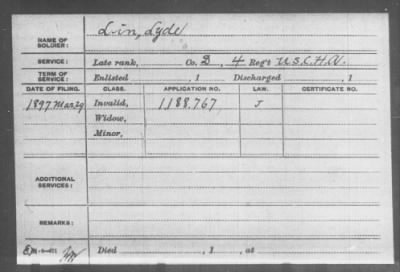 NAME OF SOLDIER: Lin, Lyde
SERVICE: Late rank, Co. D, 4 Reg't U.S.C.H.A.
TERM OF SERVICE: Enlisted , 1 Discharged , 1
DATE OF FILING. CLASS. APPLICATION NO. LAW. CERTIFICATE NO.
1897 Mar 29 Invalid, 1188.767 J
Widow,
Minor,
ADDITIONAL SERVICES:
REMARKS:
Died , 1 , at